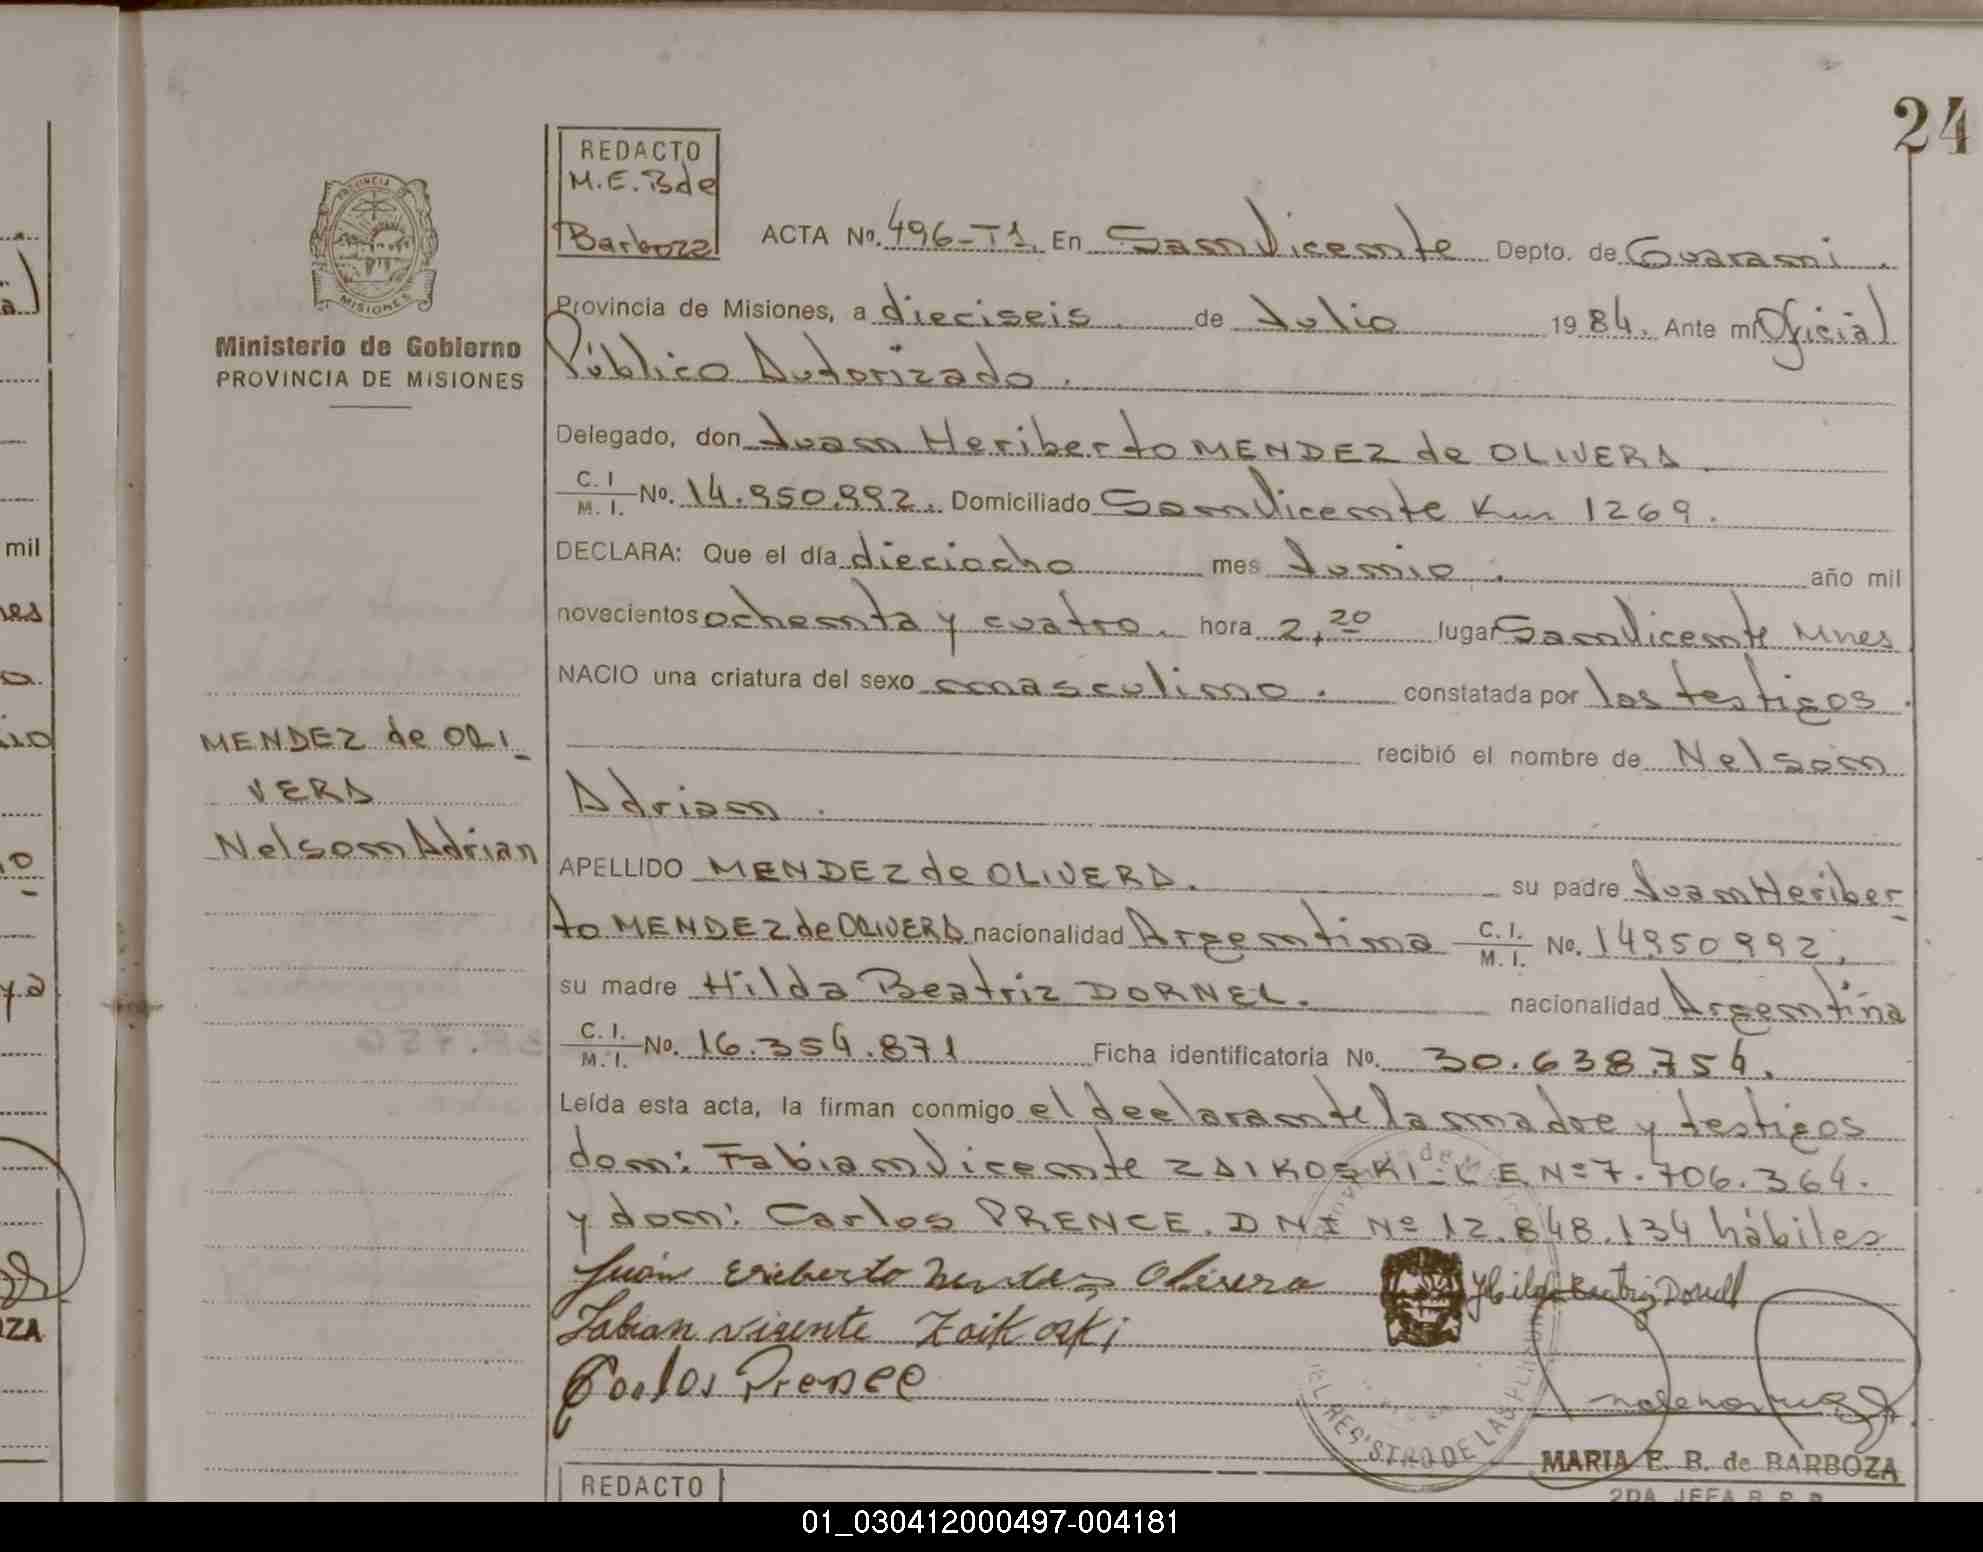 24
REDACTO
M.E.B de
Barboza
PROVINCIA DE
MISIONES
Ministerio de Gobierno
PROVINCIA DE MISIONES
ACTA No. 496-T1. En San Vicente Depto. de Guarani.
Provincia de Misiones, a dieciseis de Julio 1984. Ante mí Oficial
Público Autorizado.
Delegado, don Juan Heriberto MENDEZ de OLIVERA
C. I / M. I. No. 14.950.992. Domiciliado San Vicente Km 1269.
DECLARA: Que el día dieciocho mes Junio. año mil
novecientos ochenta y cuatro. hora 2,20 lugar San Vicente Mnes
NACIO una criatura del sexo masculino. constatada por los testigos.
recibió el nombre de Nelson
Adrian.
MENDEZ de OLI-
VERA
Nelson Adrian
APELLIDO MENDEZ de OLIVERA. su padre Juan Heriber-
to MENDEZ de OLIVERA nacionalidad Argentina C. I. / M. I. No. 14950992,
su madre Hilda Beatriz DORNEL. nacionalidad Argentina
C. I. / M. I. No. 16.354.871 Ficha identificatoria No. 30.638.754.
Leída esta acta, la firman conmigo el declarante la madre y testigos
don: Fabian Vicente ZAIKOSKI-L E Nº 7.706.364.
y don: Carlos PRENCE. DNI Nº 12.848.134 hábiles
Juan Eriberto Mendez Olivera Hilda Beatriz Dornell
Fabian Vicente Zaikoski
Carlos Prence
REGISTRO DE LAS
MARIA E. B. de BARBOZA
2DA JEFA R. P. P.
REDACTO
mil
ZA
01_030412000497-004181